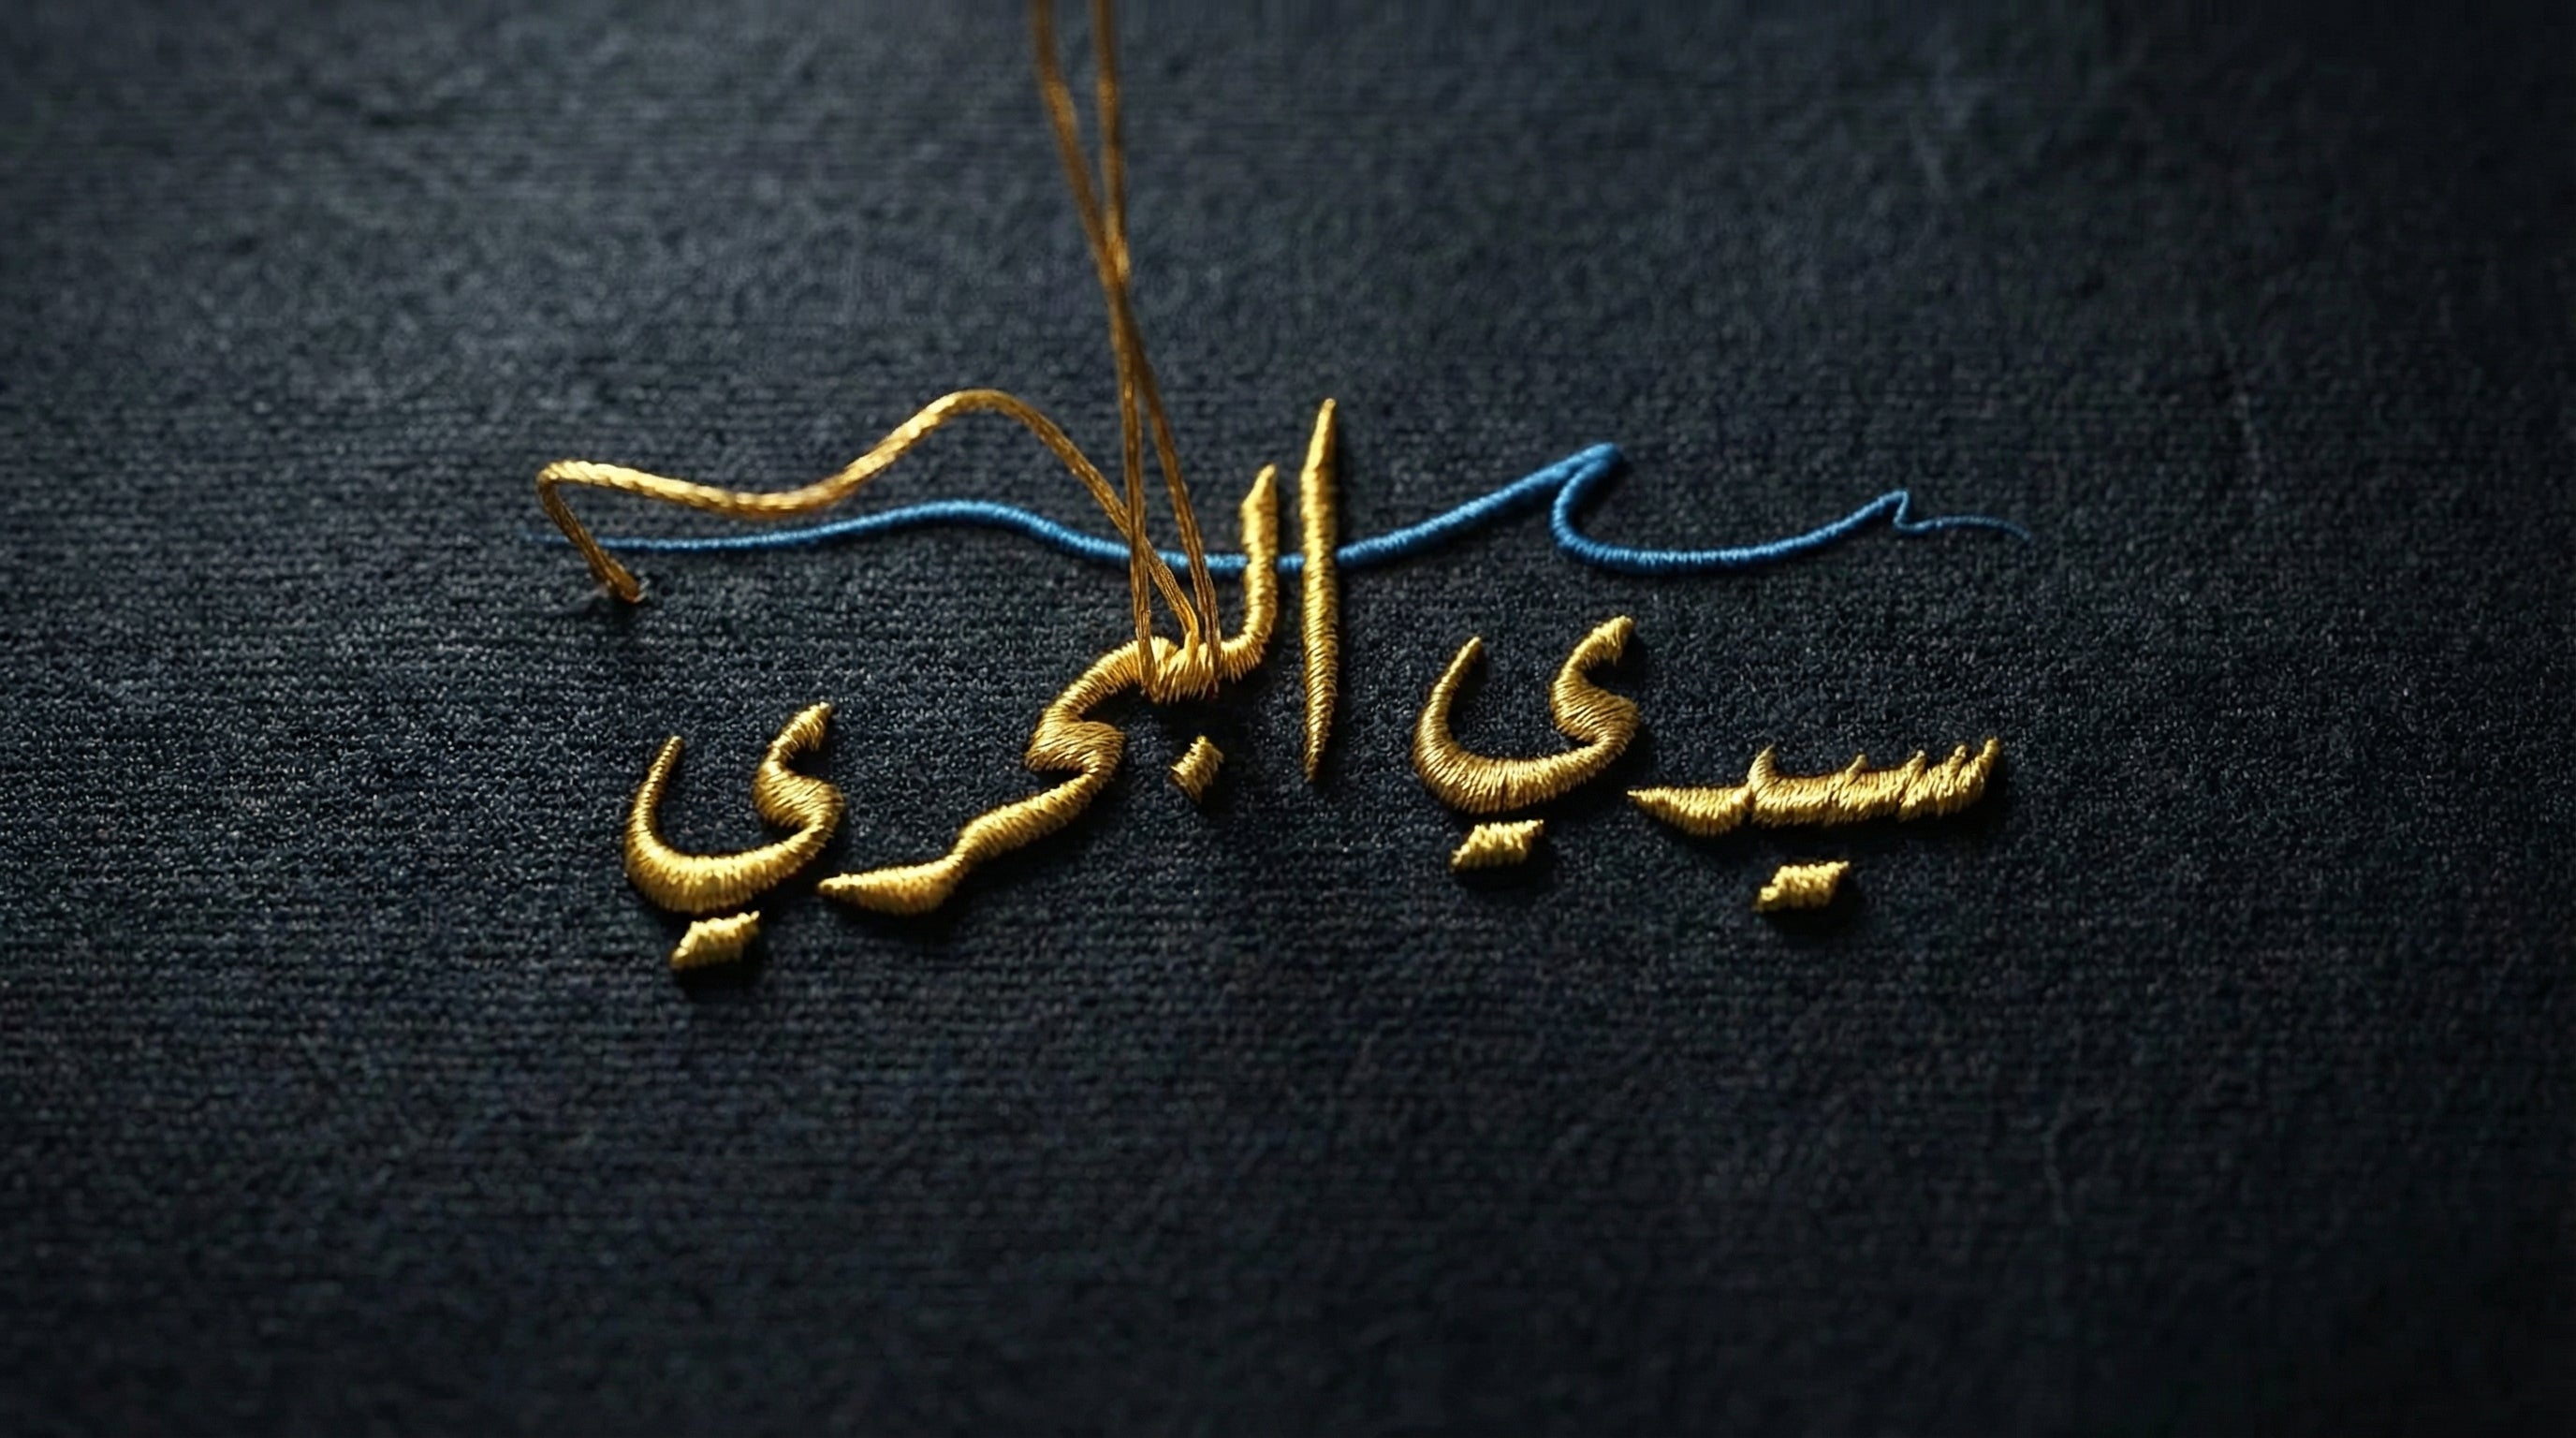 سيدي البحري